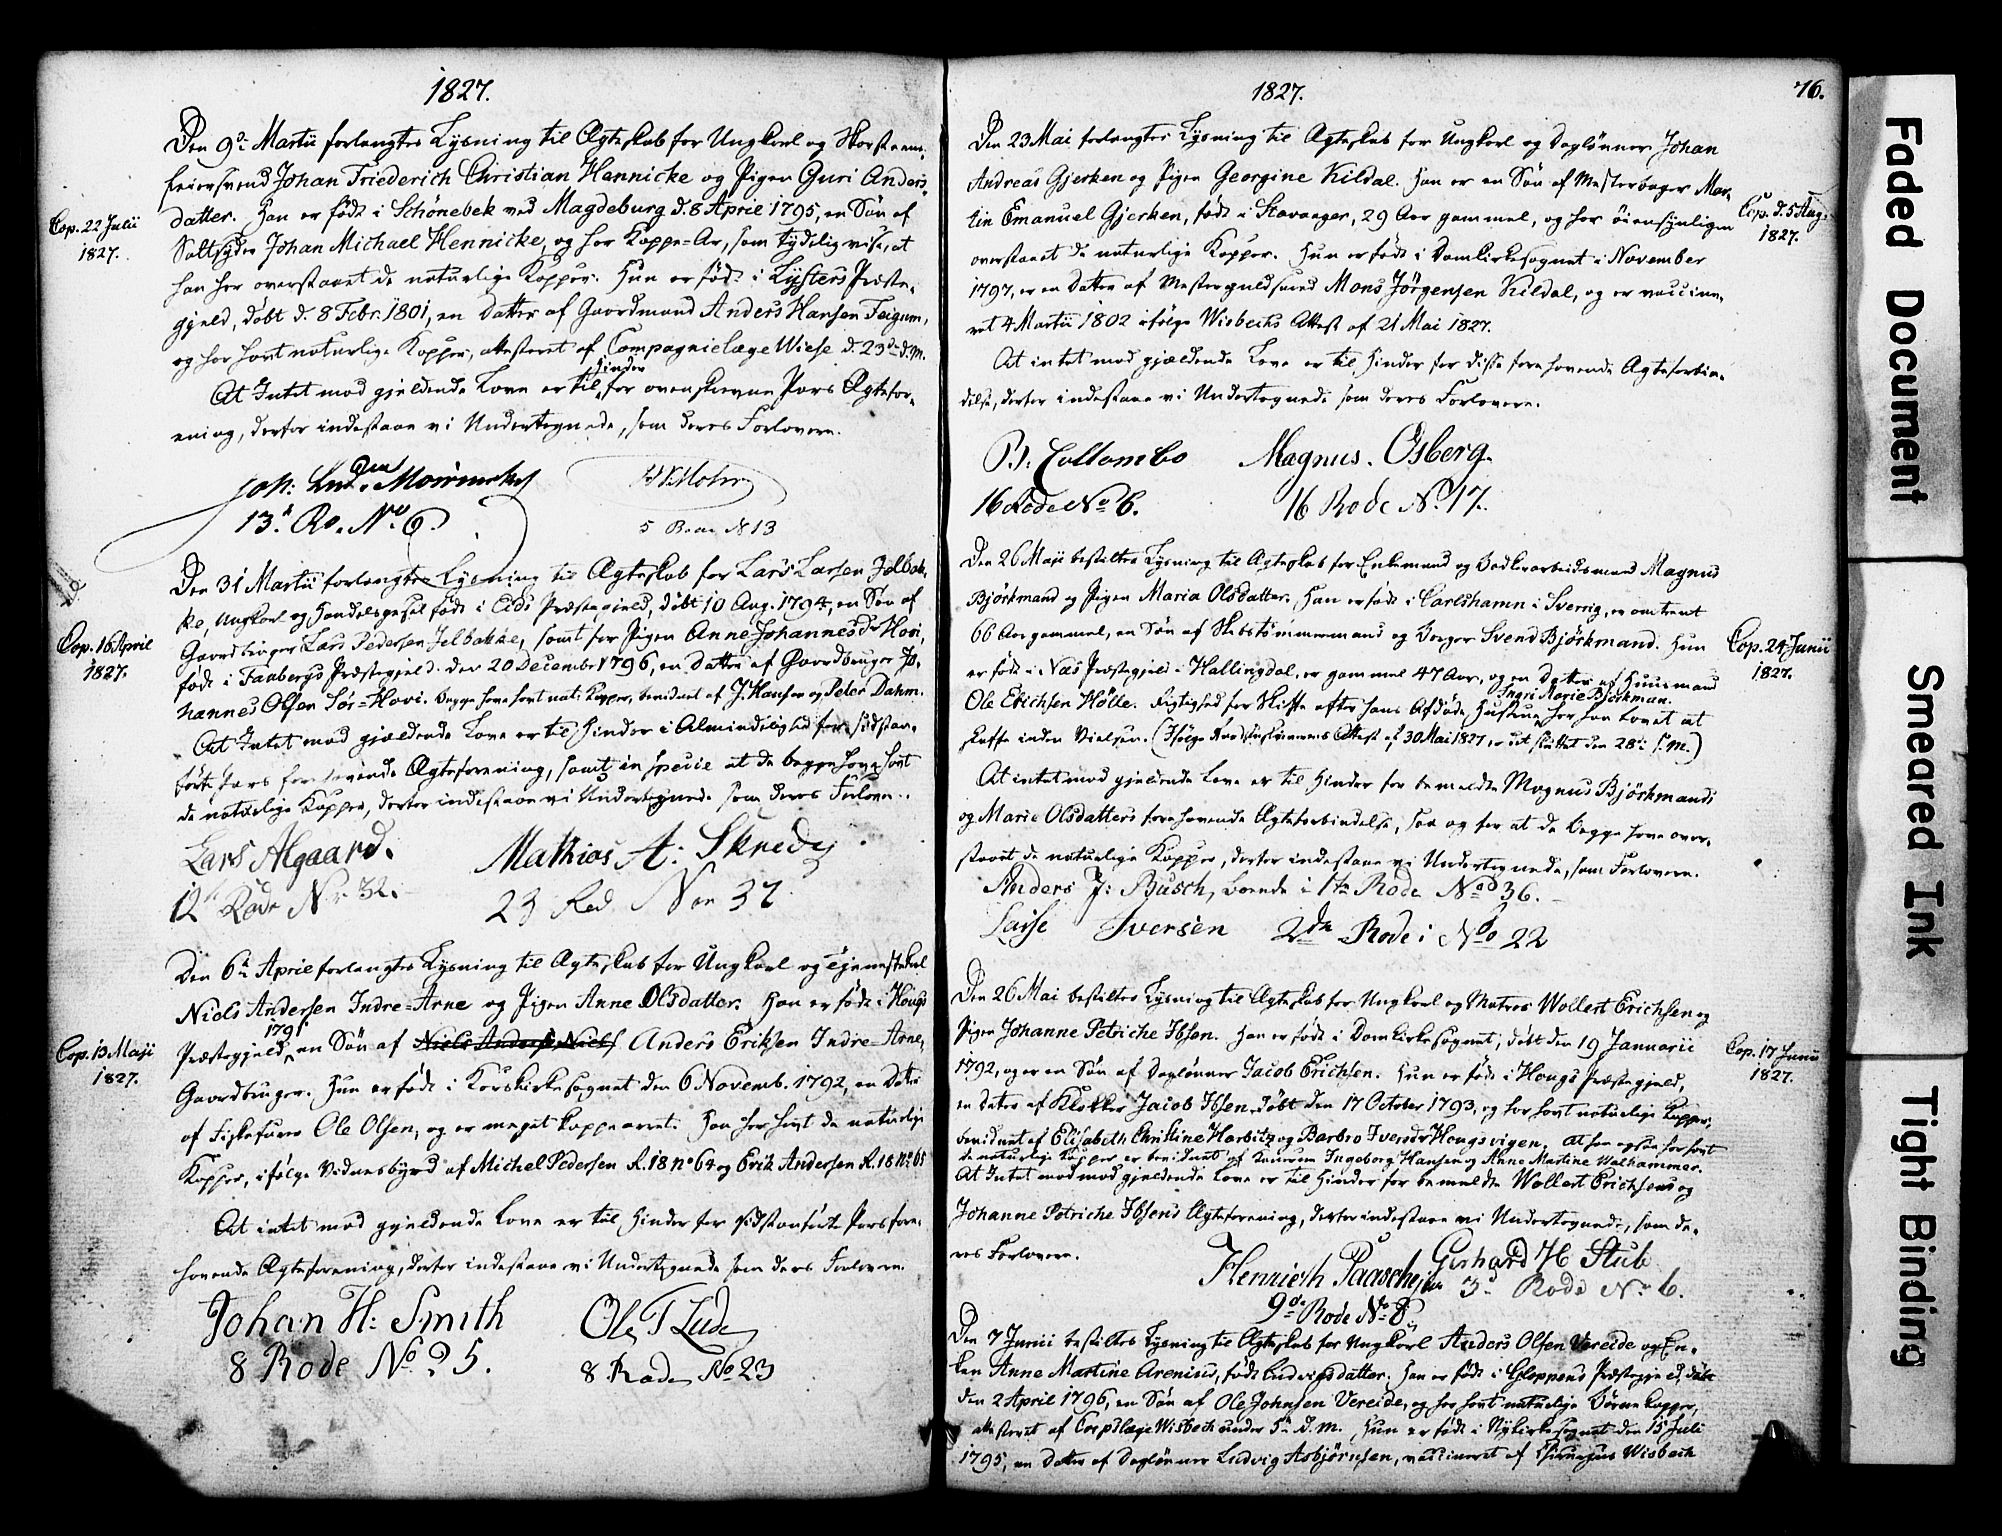 1827.
Den 9de Martii forlangtes Lysning til Ægteskab for Ungkarl og Skorsteens-
feiersvend Johan Friederich Christian Hennicke og Pigen Guri Anders-
datter. Han er født i Schönebek ved Magdeburg d. 8 April 1795, en Søn af
Saltsyder Johan Michael Hennicke, og har Koppe-Ar, som tydelig vise, at
han har overstaaet de naturlige Kopper. Hun er født i Lysters Præste-
gjeld, døbt d. 8 Febr. 1801, en Datter af Gaardmand Anders Hansen Feigum,
og har havt naturlige Kopper, attesteret af Compagnielæge Wiese d. 23de d. M.
At Intet mod gjeldende Love er til Hinder for ovenskrevne Pars Ægtefor-
ening, derfor indestaae vi Undertegnede, som deres Forlovere.
Cop. 22 Julii
1827.
Joh: Lud.
13de Ro. No 6.
Mohr
5 Rode N 13
Den 31 Martii forlangtes Lysning til Ægteskab for Lars Larsen Jelbak-
ke, Ungkarl og Handelsgesel født i Eids Præstegjeld, døbt 10 Aug. 1794, en Søn af
Gaardbruger Lars Pedersen Jelbakke, samt for Pigen Anne Johannesdr Hovi,
født i Faabergs Præstegjeld. den 20 December 1796, en Datter af Gaardbruger Jo-
hannes Olsen Sør-Hovi. Begge have havt nat: Kopper, bevidnet af J. Hansen og Peter Dahm.
At Intet mod gjældende Love er til Hinder i Almindelighed for sidstan-
førte Pars forehavende Ægteforening, samt in specie at de begge have havt
de naturlige Kopper, derfor indestaae vi Undertegnede som deres Forlov..
Cop. 16 April
1827.
Lars Algaard.
12te Rode Nr 32.
Mathias A: Skredy
23 Rod No 37
Den 6te April forlangtes Lysning til Ægteskab for Ungkarl og Tjenestekarl
Niels Andersen Indre-Arne og Pigen Anne Olsdatter. Han er født i Hougs
Præstegjeld 1795 en Søn af Niels Anders. Niels Anders Eriksen Indre-Arne,
Gaardbruger. Hun er født i Korskirkesognet den 6 Novemb. 1792, en Datter
af Fiskefører Ole Olsen, og er meget koppearret. Han har havt de naturlige
Kopper, ifølge Vidnesbyrd af Michel Pedersen R. 18 no 64 og Erik Andersen R. 18 No 65
At intet mod gjeldende Love er til Hinder for sidstanførte Pars fore-
havende Ægteforening, derfor indestaae vi Undertegnede som deres Forlovere.
Cop. 13 Maji
1827.
Johan H: Smith
8 Rode No 25.
Ole T Lude
8 Rode No 23
1827.
76.
Den 23 Mai forlangtes Lysning til Ægteskab for Ungkarl og Daglønner Johan
Andreas Gjerken og Pigen Georgine Kildal. Han er en Søn af Mesterbager Mar-
tin Emanuel Gjerken, født i Stavanger, 29 Aar gammel, og har øiensynligen
overstaaet de naturlige Kopper. Hun er født i Domkirkesognet i November
1797, er en Datter af Mesterguldsmed Mons Jörgensen Kildal, og er vaccine-
ret 4 Martii 1802 ifølge Wisbechs Attest af 21 Mai 1827.
At intet mod gjældende Love er til Hinder for disse forehavende Ægteforbin-
delse, derfor indestaae vi Undertegnede som deres Forlovere.
Cop. d. 5 Aug.
1827.
P. J. Collombo
16 Rode No 6.
Magnus. Osberg.
16 Rode No. 17.
Den 26 Maji bestiltes Lysning til Ægteskab for Enkemand og Bødkerarbeidsmand Magnus
Björkmand og Pigen Maria Olsdatter. Han er født i Carlshamn i Sverrig, er omtrent
66 Aar gammel, en Søn af Skibstømmermand og Borger Svend Björkmand. Hun
er født i Næs Præstegjeld i Hallingdal, er gammel 47 Aar, og en Datter af Huusmand
Ole Erichsen Hölle. Rigtighed for Skifte efter hans Afdøde Hustrue Ingri Marie Björkman. har han lovet at
skaffe inden Vielsen. (Ifølge Attest af 30 Mai 1827 er det sluttet den 28de s. M.)
At intet mod gjeldende Love er til Hinder for bemeldte Magnus Björkmands
og Marie Olsdatters forehavende Ægteforbindelse, saa og for at de begge have over-
staaet de naturlige Kopper, derfor indestaae vi Undertegnede, som Forlovere.
Cop. 24 Junii
1827.
Anders J: Busch, boende i 1te Rode No 36.
Lasse Iversen 2de Rode i No 22
Den 26 Mai bestiltes Lysning til Ægteskab for Ungkarl og Matros Wollert Erichsen og
Pigen Johanne Petriche Ibsen. Han er født i Domkirkesognet, døbt den 19 Januarii
1792, og er en Søn af Daglønner Jacob Erichsen. Hun er født i Hougs Præstegjeld,
en Datter af Klokker Jacob Ibsen, døbt den 17 October 1793, og har havt naturlige Kopper,
bevidnet af Elisabeth Christine Harbitz og Barbro Iversdr Hougsvigen. At han ogsaa har havt
de naturlige Kopper er bevidnet af Ingeborg Hansen og Anne Martine Walhammer.
At Intet mod mod gjeldende Love er til Hinder for bemeldte Wollert Erichsens og
Johanne Petriche Ibsens Ægteforening, derfor indestaae vi Undertegnede, som de-
res Forlovere.
Cop. 17 Junii
1827.
Henrich Paasche jun
9de Rode No 8
Gerhard H Stub
3d Rode No 6.
Den 7 Junii bestiltes Lysning til Ægteskab for Ungkarl Anders Olsen Vereide og En-
ken Anne Martine Arenius, født Ludvigsdatter. Han er født i Gloppens Præstegjeld, døbt
den 2 April 1796, en Søn af Ole Johnsen Vereide, og har havt naturlige Børnekopper,
attesteret af Corpslæge Wisbech under 5te d. M. Hun er født i Nykirkesognet den 15 Juli
1795, en Datter af Daglønner Ludvig Asbjørnsen, vaccineret af Chirurgus Wisbech
Faded Document
Smeared Ink
Tight Binding